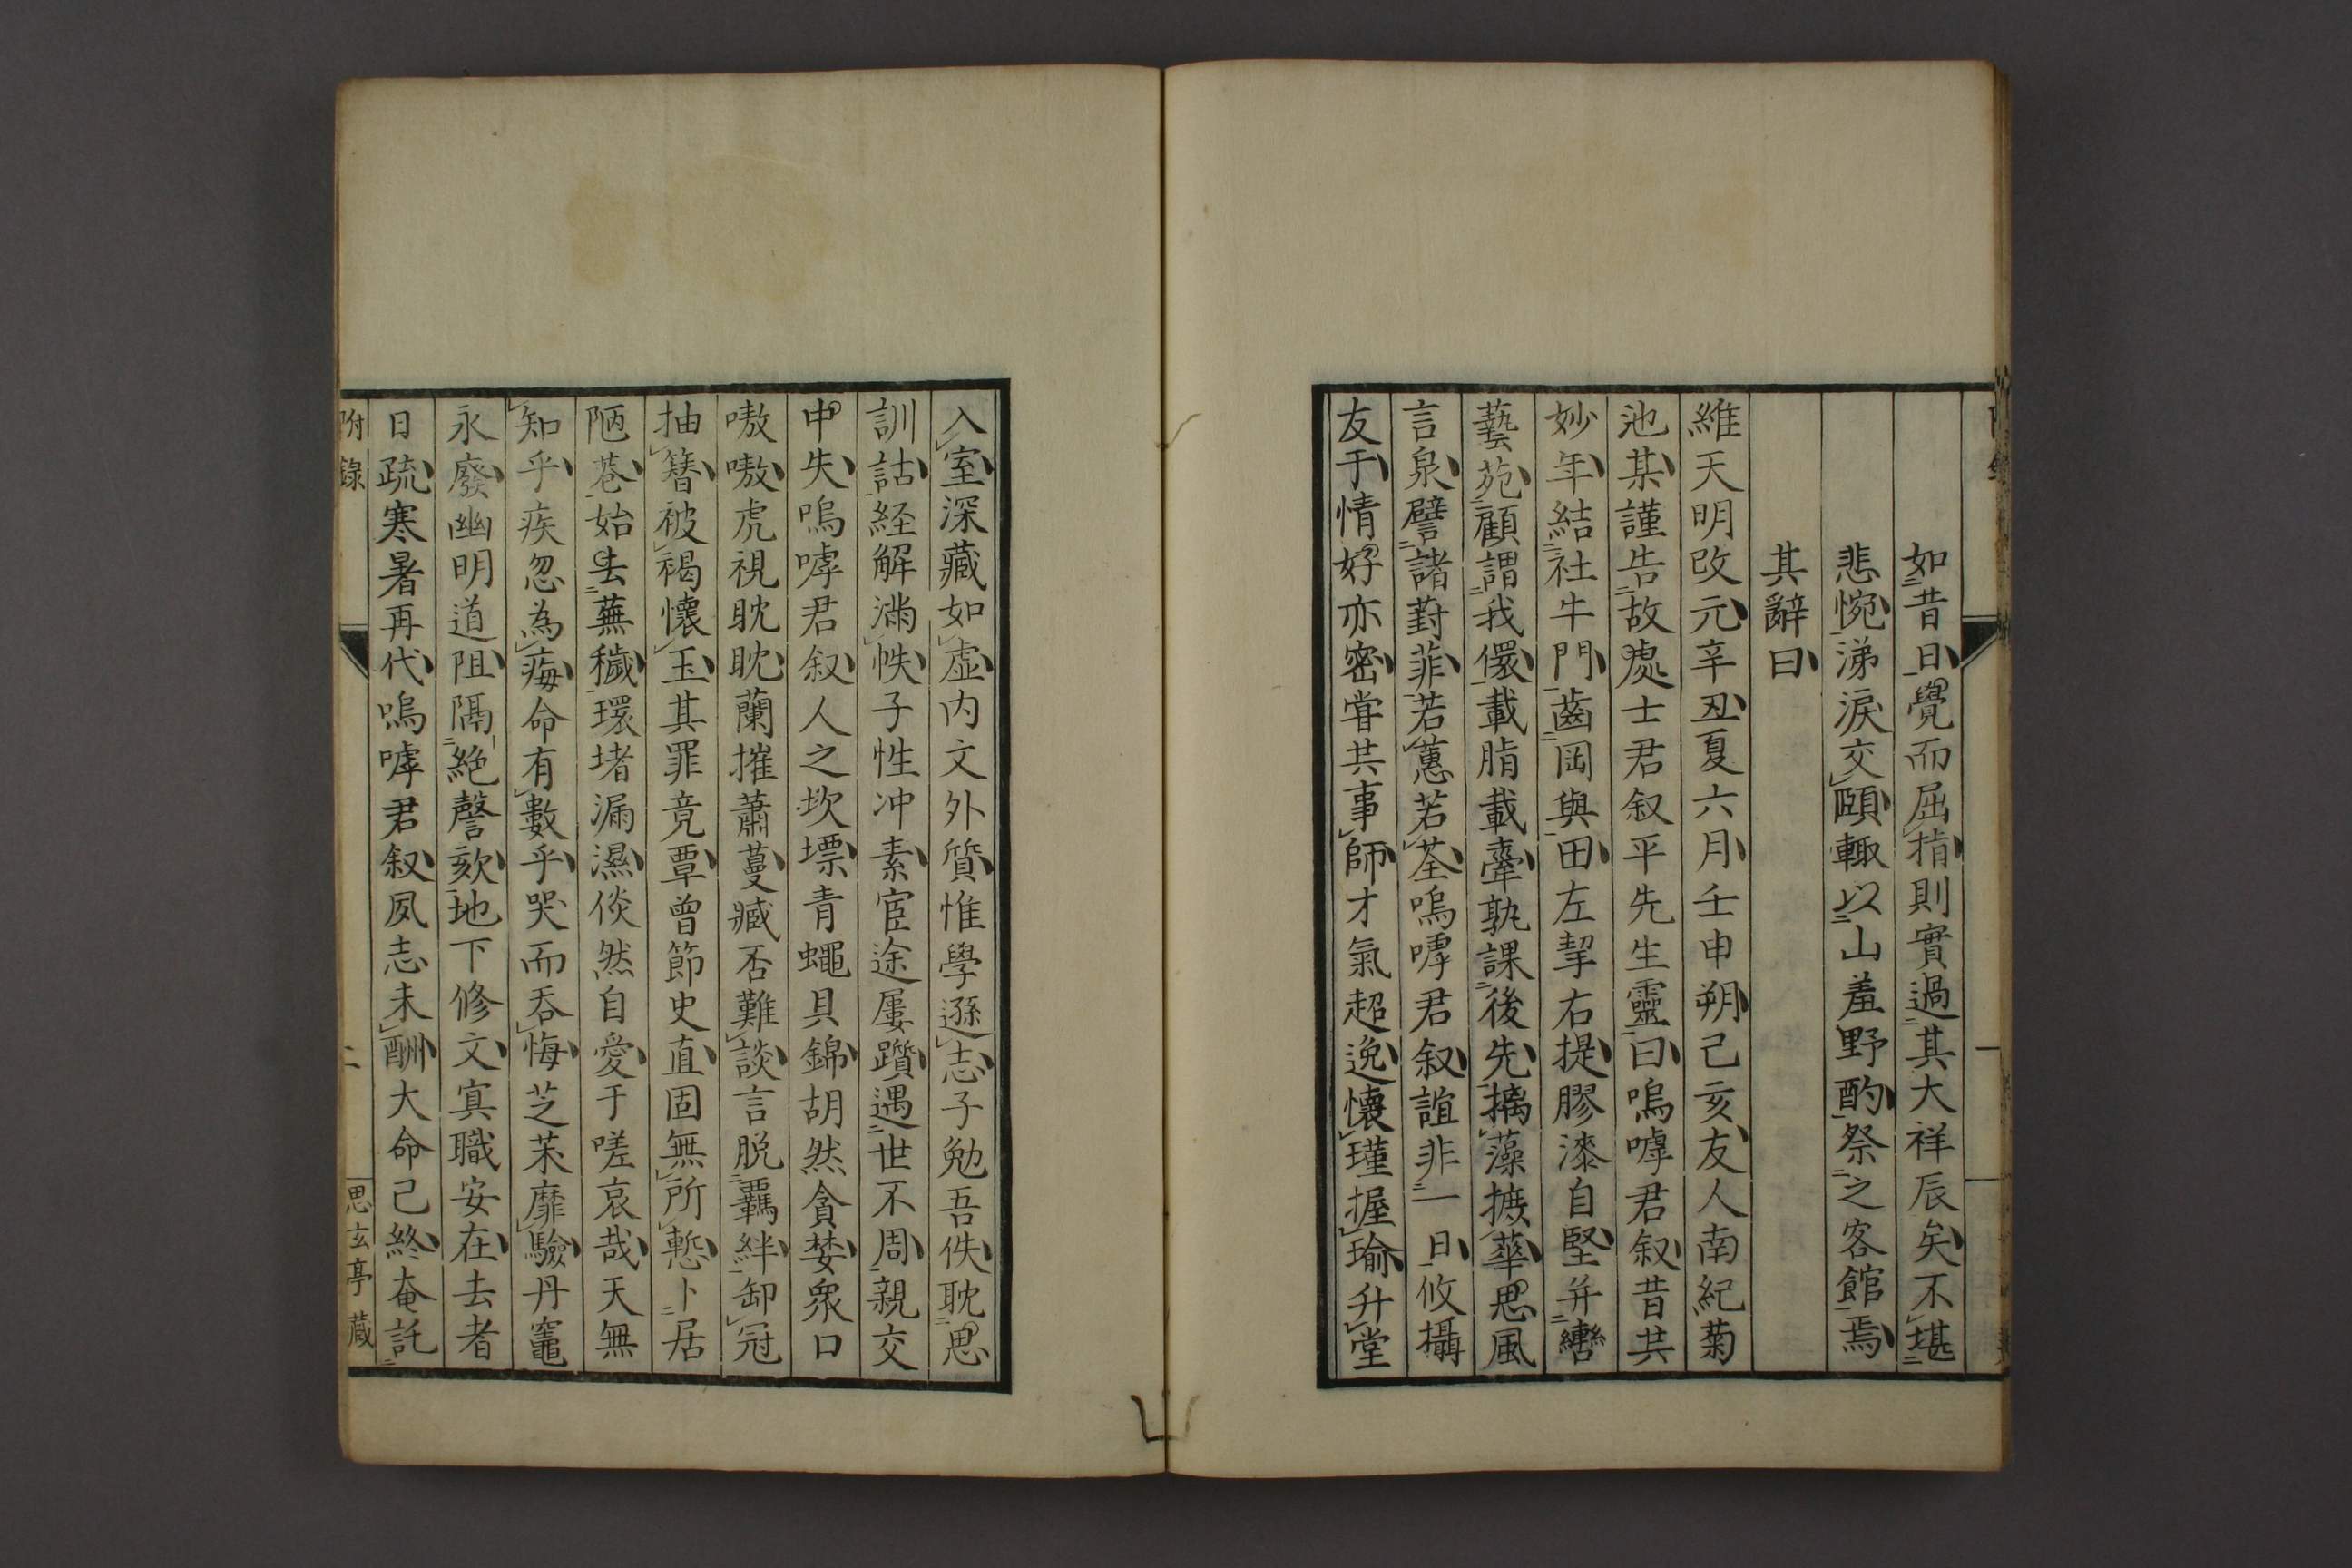 如昔日覺而屈指則實過其大祥辰矣不堪
悲惋涕淚交頤輙以山羞野酌祭之客館焉
其辭曰
維天明改元辛丑夏六月壬申朔己亥友人南紀菊
池某謹告故處士君叙平先生靈曰嗚嘑君叙昔共
妙年結社牛門齒岡與田左挈右提膠漆自堅并轡
藝苑顧謂我儇載脂載舝孰課後先摛藻摭華思風
言泉譬諸葑菲若蕙若荃嗚嘑君叙誼非一日攸攝
友于情好亦密甞共事師才氣超逸懷瑾握瑜升堂
入室深藏如虛内文外質惟學遜志子勉吾佚耽思
訓詁経解滿帙子性冲素宦途屢躓遇世不周親交
中失嗚嘑君叙人之坎壈青蠅具錦胡然貪婪衆口
嗷嗷虎視眈眈蘭摧蕭蔓臧否難談言脱羈絆卸冠
抽簪被褐懷玉其罪竟覃曾節史直固無所慙卜居
陋巷始去蕪穢環堵漏濕倏然自愛于嗟哀哉天無
知乎疾忽為痗命有數乎哭而呑悔芝朮靡驗丹竈
永廢幽明道阻隔絶謦欬地下修文寘職安在去者
日疏寒暑再代嗚嘑君叙夙志未酬大命已終奄託
附錄
二
思玄亭藏